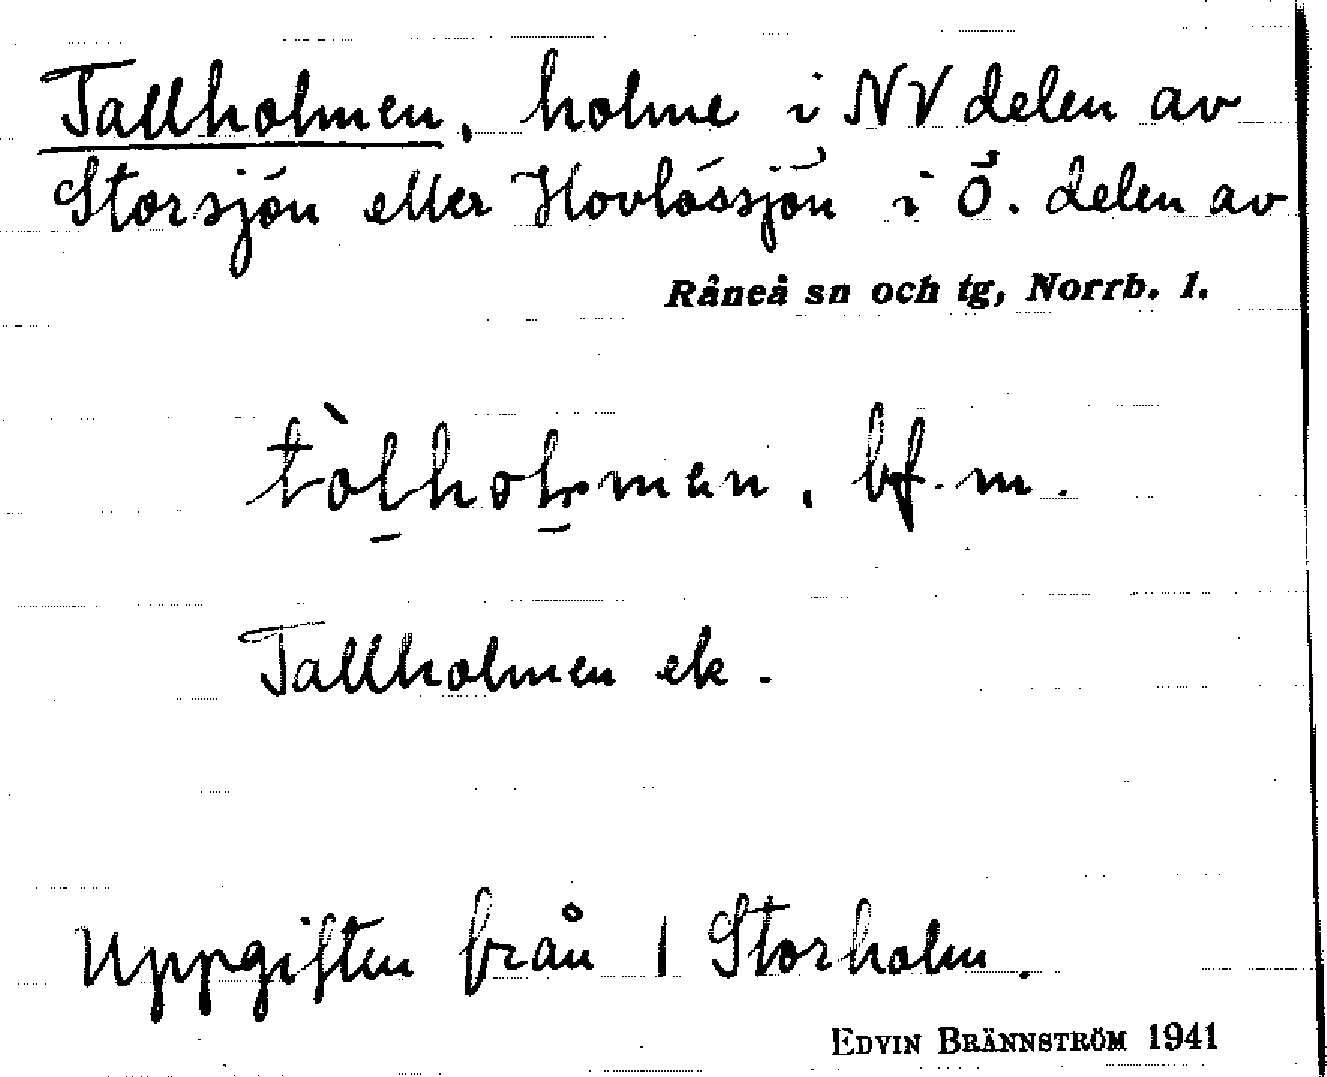 Tallholmen, holme i NV delen av
Storsjön eller Hovlössjön i Ö. delen av
Råneå sn och tg, Norrb. l.
bf. m.
Tallholmen ek.
Uppgiften från 1 Storholm.
EDVIN BRÄNNSTRÖM 1941